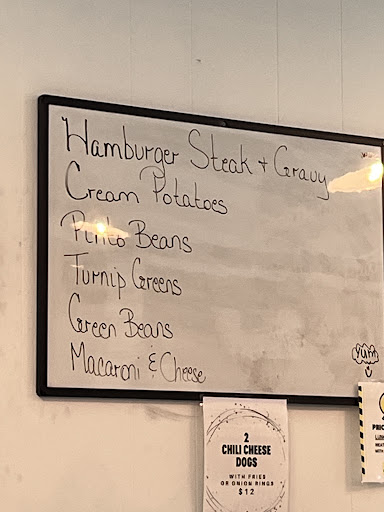 Hamburger Steak + Gravy
Cream Potatoes
Pinto Beans
Turnip Greens
Green Beans
Macaroni & Cheese
YUM
2
CHILI CHEESE
DOGS
WITH FRIES
OR ONION RINGS
$12